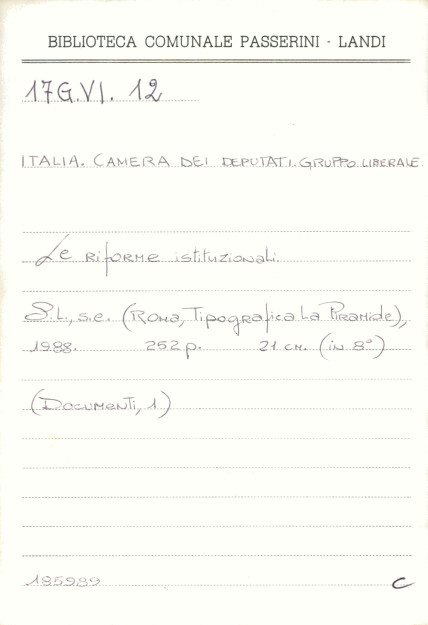 BIBLIOTECA COMUNALE PASSERINI - LANDI
17G.VI. 12
ITALIA. CAMERA DEI DEPUTATI. GRUPPO LIBERALE.
Le riforme istituzionali.
S.L., s.e. (Roma, Tipografica La Piramide),
1988. 252 p. 21 cm. (in 8°)
(Documenti, 1)
185989 C